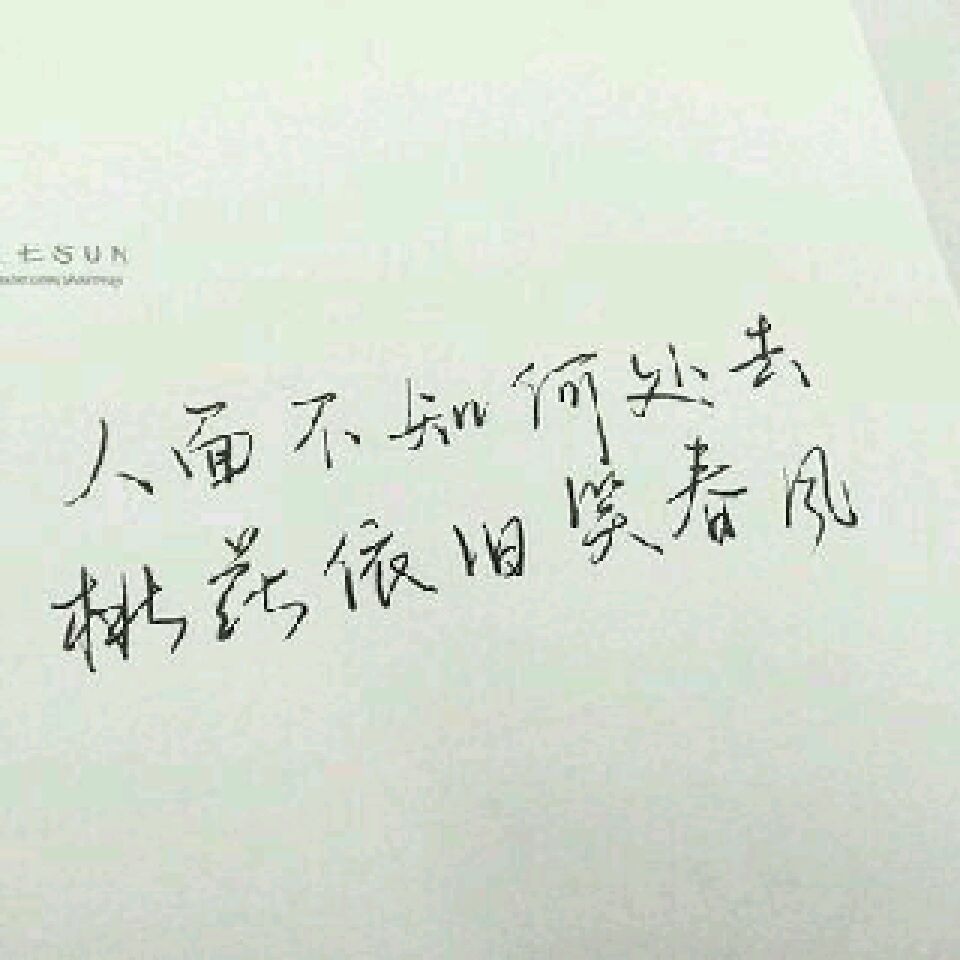 七SUN
人面不知何处去
桃花依旧笑春风